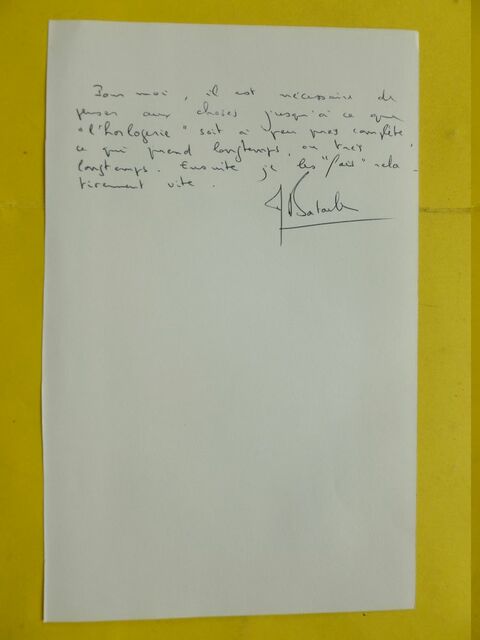 Pour moi, il est nécessaire de
penser aux choses jusqu'à ce que
"l'horlogerie" soit à peu près complète
ce qui prend longtemps, ou très
longtemps. Ensuite je les "fais" rela-
tivement vite.